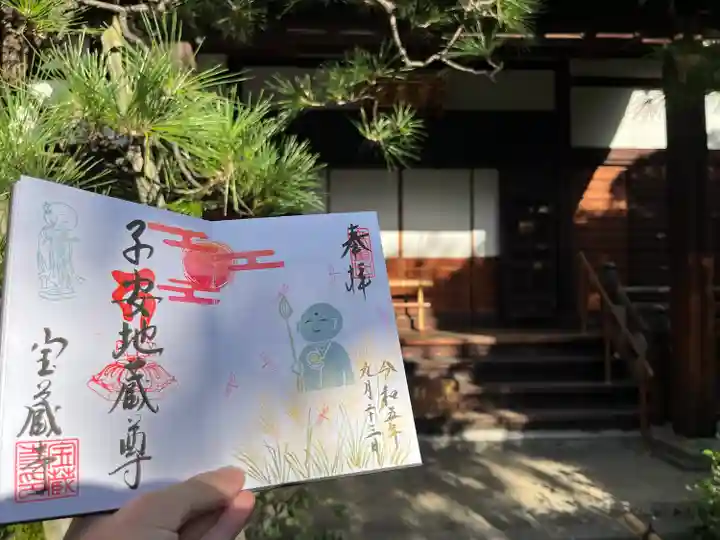 奉拝
令和五年
九月二十三日
子安地蔵尊
宝蔵寺